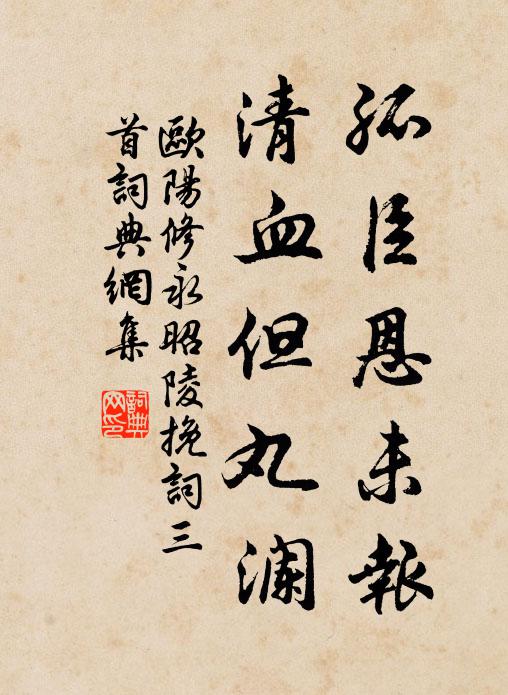 孤臣恩未報
清血但丸瀾
歐陽修永昭陵挽詞三
首詞典網集
詞典
网印